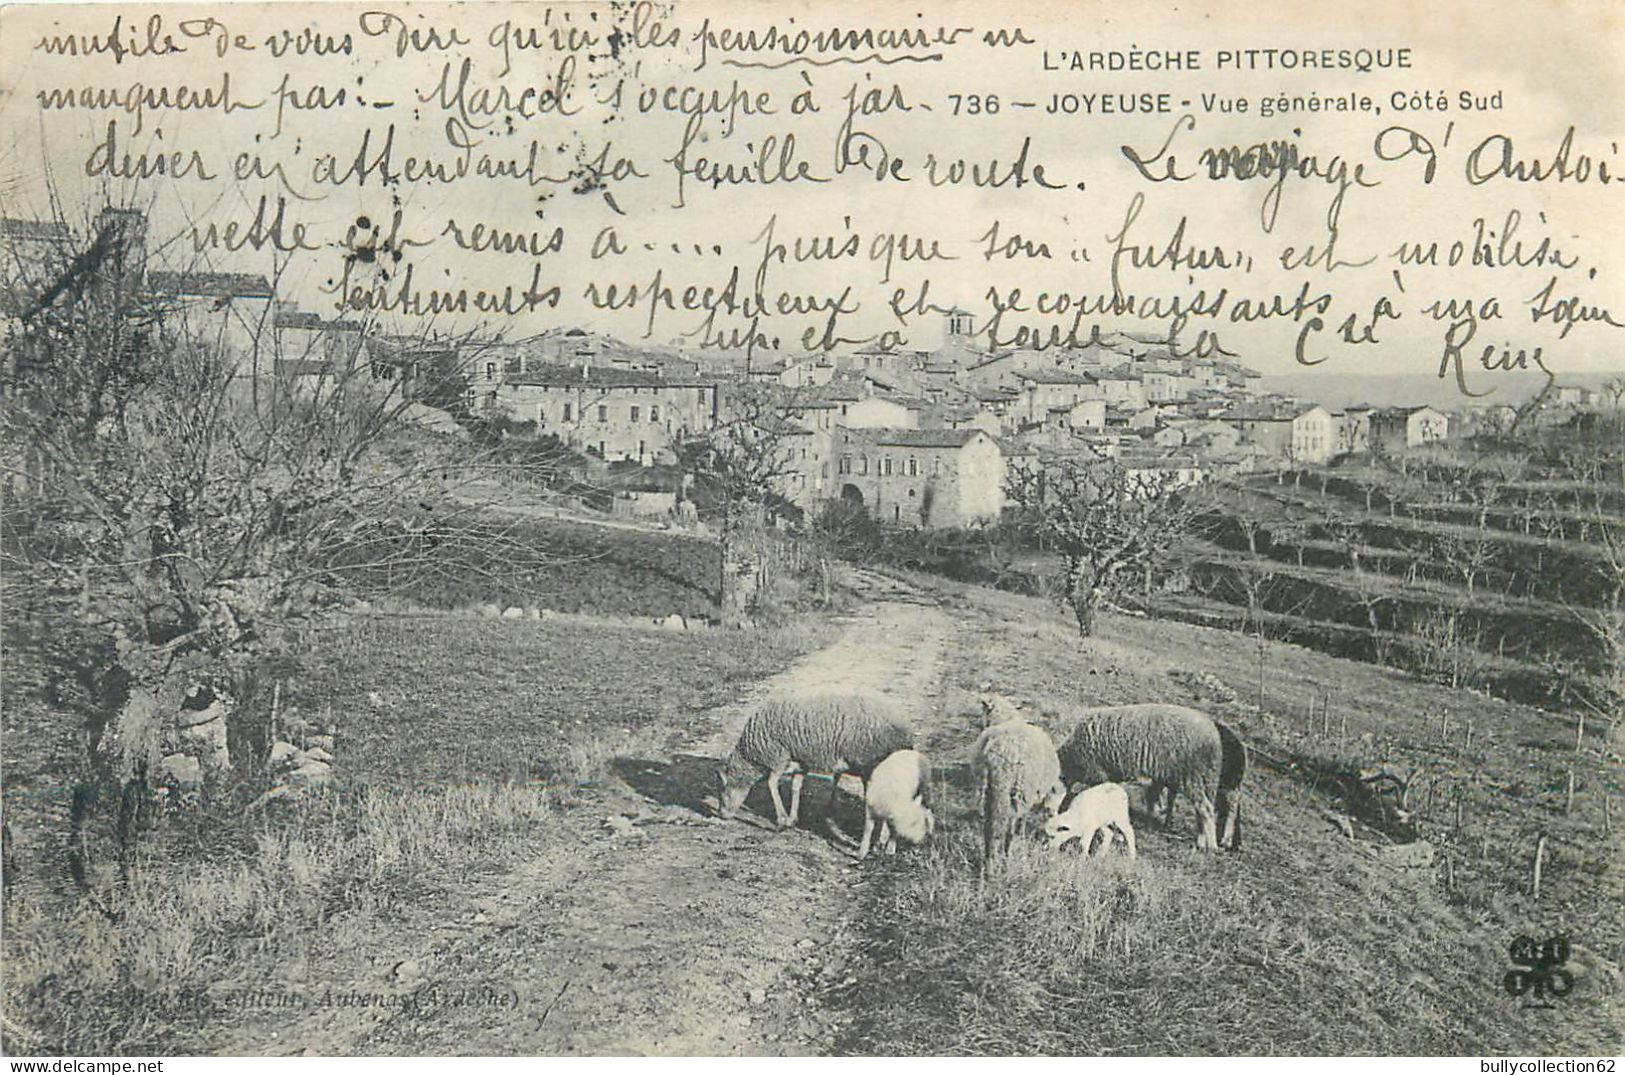 inutile de vous dire qu'ici les pensionnaires ne
L'ARDÈCHE PITTORESQUE
manquent pas :- Marcel s'occupe à jar-
736 — JOYEUSE - Vue générale, Côté Sud
diner en attendant sa feuille de route. Le mariage d'Antoi-
nette est remis à .... puisque son "futur" est mobilisé.
Sentiments respectueux et reconnaissants à ma soeur
sup. et à toute la Cté René
éditeur, Aubenas (Ardèche)
bullycollection62